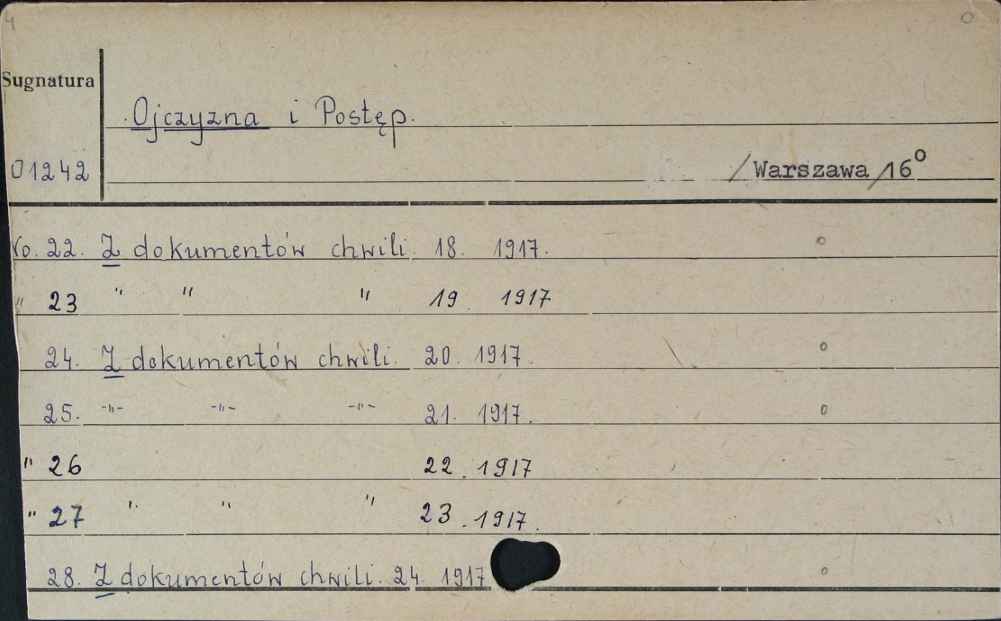 4 O
Sugnatura
Ojczyzna i Postęp.
01242 /Warszawa/16°
No. 22. Z dokumentów chwili. 18. 1917. o
" 23 " " " 19. 1917
24. Z dokumentów chwili. 20. 1917. o
25. -"- -"- -"- 21. 1917. o
" 26 22. 1917
" 27 " " " 23. 1917.
28. Z dokumentów chwili. 24. 1917 o